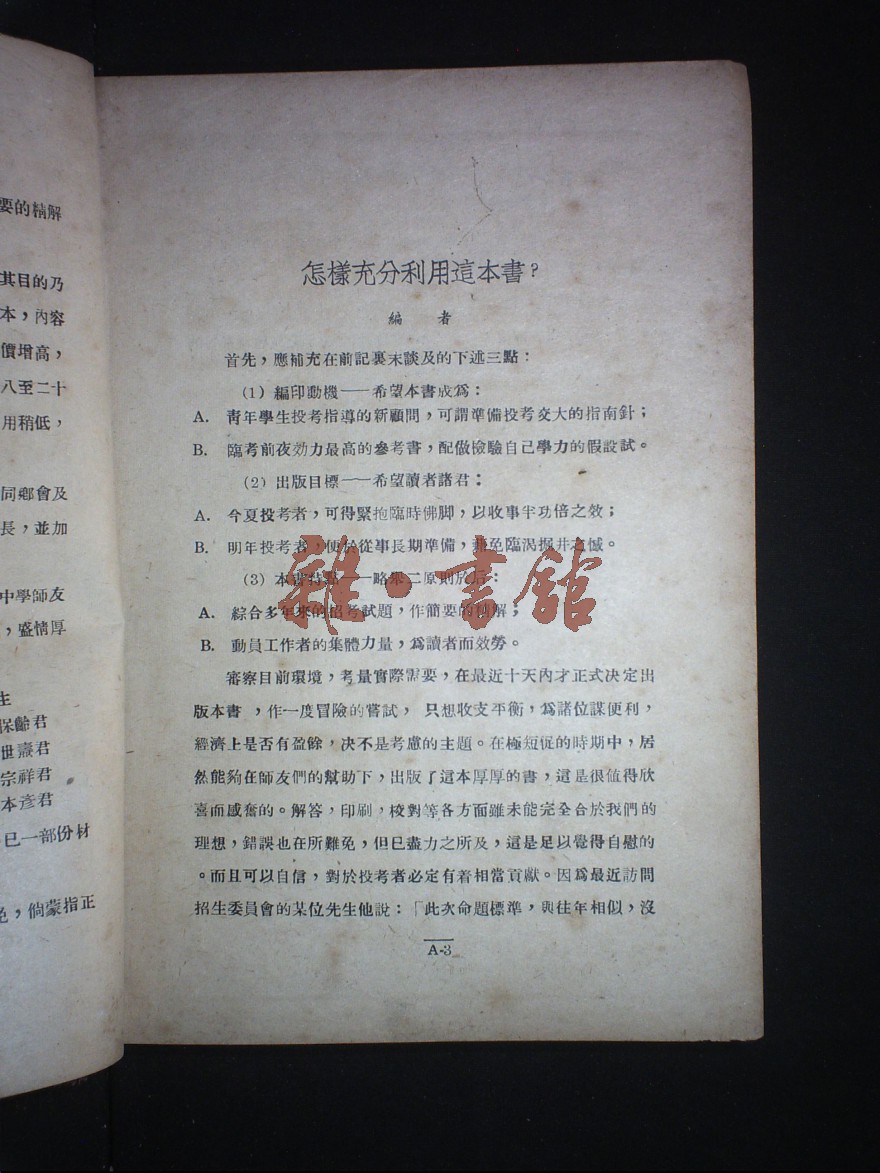 要的精解
其目的乃
本，內容
價增高，
八至二十
用稍低，
同鄉會及
長，並加
中學師友
，盛情厚
生
保齡君
世燾君
宗祥君
本彥君
已一部份材
免，倘蒙指正
怎樣充分利用這本書？
編　者
首先，應補充在前記裏未談及的下述三點：
(1) 編印動機——希望本書成爲：
A. 靑年學生投考指導的新顧問，可謂準備投考交大的指南針；
B. 臨考前夜効力最高的參考書，配做檢驗自己學力的假設試。
(2) 出版目標——希望讀者諸君：
A. 今夏投考者，可得緊抱臨時佛脚，以收事半功倍之效；
B. 明年投考者，便於從事長期準備，藉免臨渴掘井之憾。
(3) 本書特點——略舉二原則於后：
A. 綜合多年來的招考試題，作簡要的精解；
B. 動員工作者的集體力量，爲讀者而效勞。
審察目前環境，考量實際需要，在最近十天內才正式决定出
版本書，作一度冒險的嘗試，只想收支平衡，爲諸位謀便利，
經濟上是否有盈餘，决不是考慮的主題。在極短促的時期中，居
然能夠在師友們的幫助下，出版了這本厚厚的書，這是很值得欣
喜而感奮的。解答，印刷，校對等各方面雖未能完全合於我們的
理想，錯誤也在所難免，但已盡力之所及，這是足以覺得自慰的
。而且可以自信，對於投考者必定有着相當貢獻。因爲最近訪問
招生委員會的某位先生他說：「此次命題標準，與往年相似，沒
A-3
雜·書館